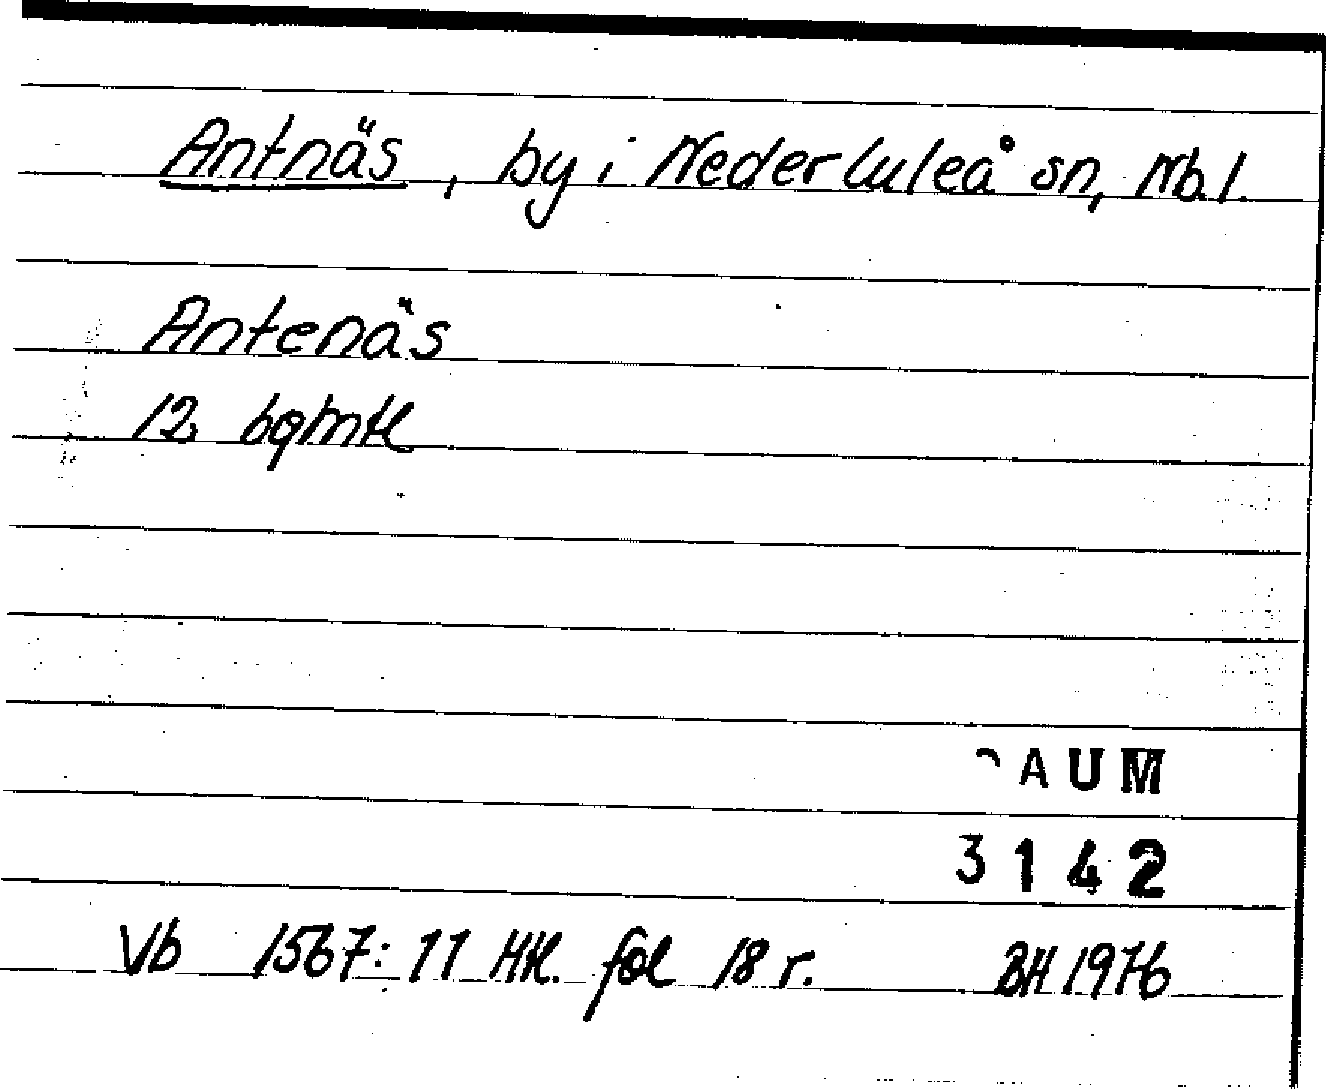 Antnäs, by i Nederluleå sn, Nb.l.
Antenäs
12 bgmtl
DAUM
3142
Vb 1567:11 HH. fol 18 r. BH 1976